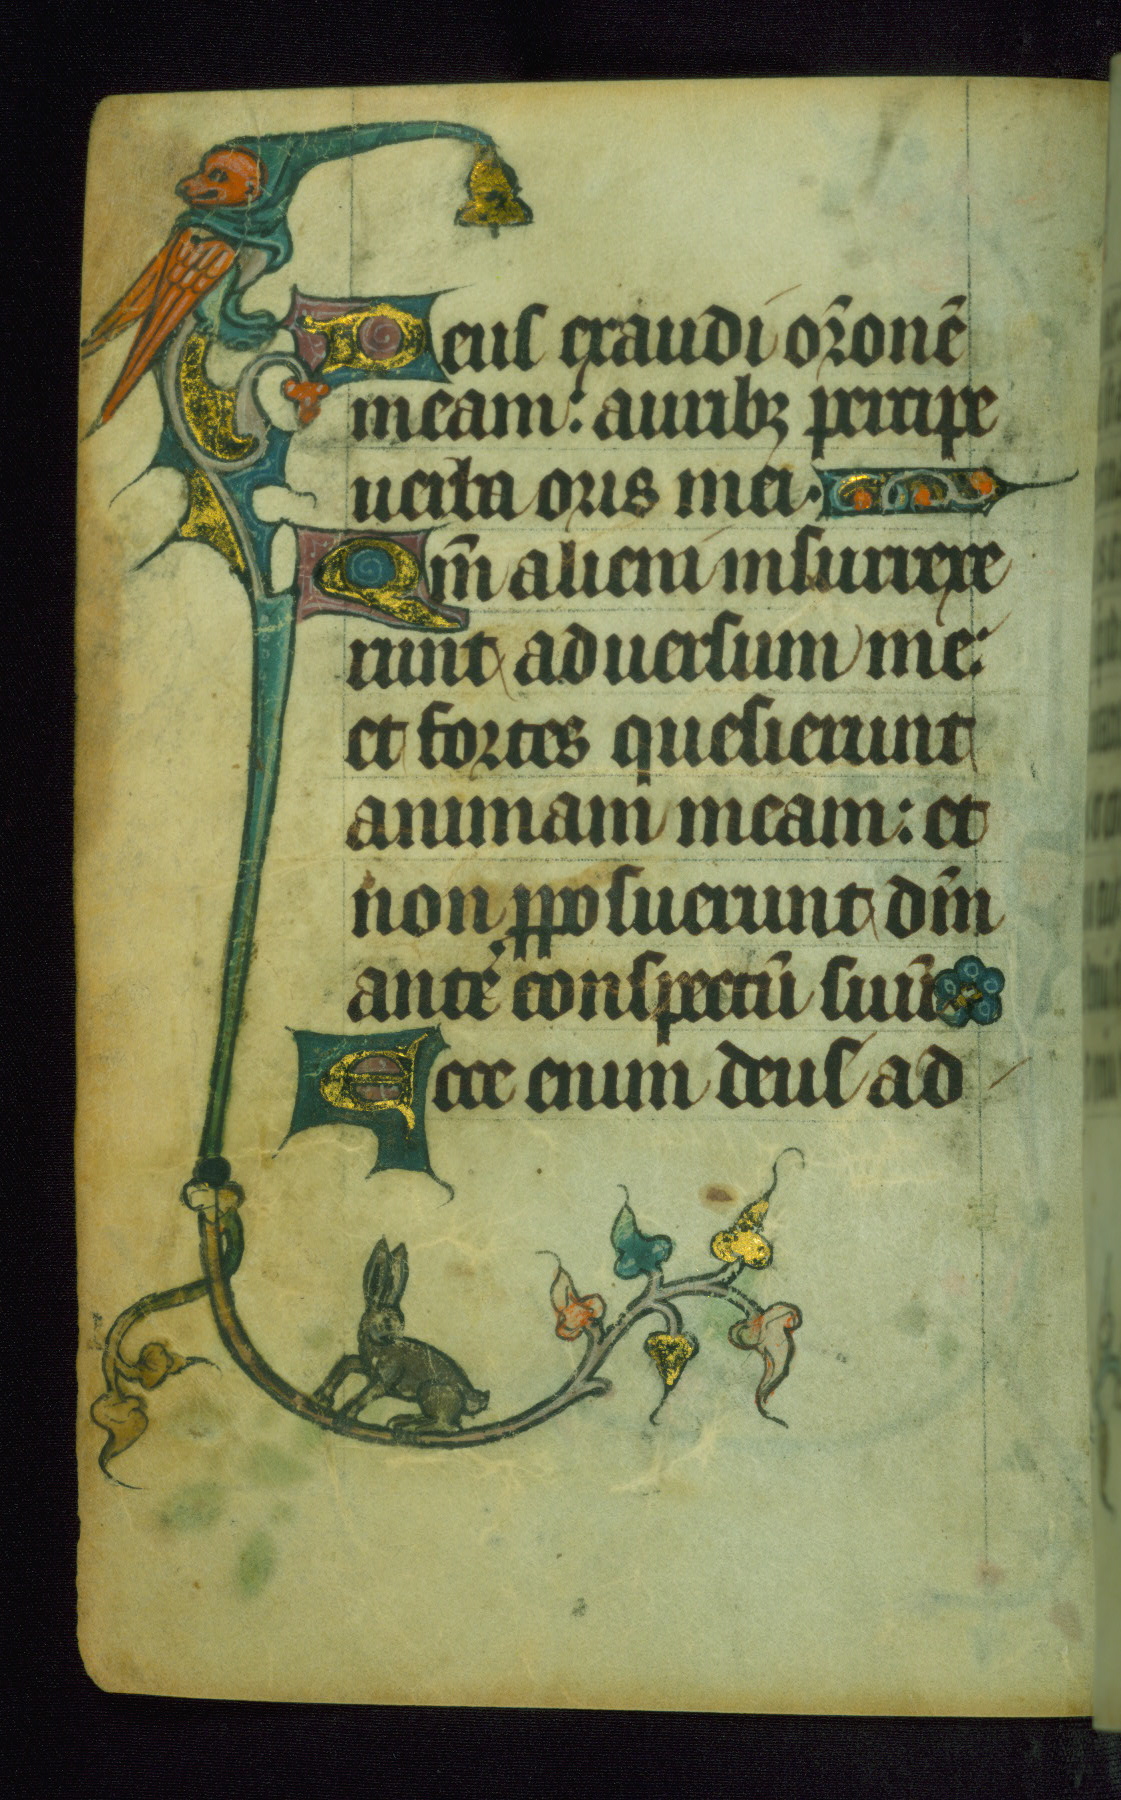 Deus exaudi or̄onē
meam: auribꝫ percipe
uerba oris mei.
Qm̄ alieni insurrexe
runt aduersum me:
et fortes quesierunt
animam meam: et
non ꝓposuerunt dm̄
ante conspectū suū
Ecce enim deus ad